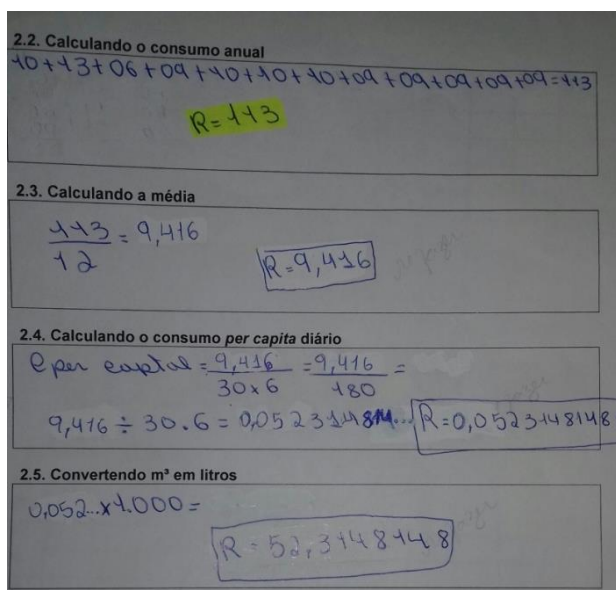 2.2. Calculando o consumo anual
10+13+06+09+10+10+10+09+09+09+09+09=113
R=113
2.3. Calculando a média
113/12 = 9,416
R=9,416
2.4. Calculando o consumo per capita diário
C per captal = 9,416/30x6 = 9,416/180 =
9,416 ÷ 30.6 = 0,052314814... R=0,0523148148
2.5. Convertendo m³ em litros
0,052...x1.000=
R=52,3148148